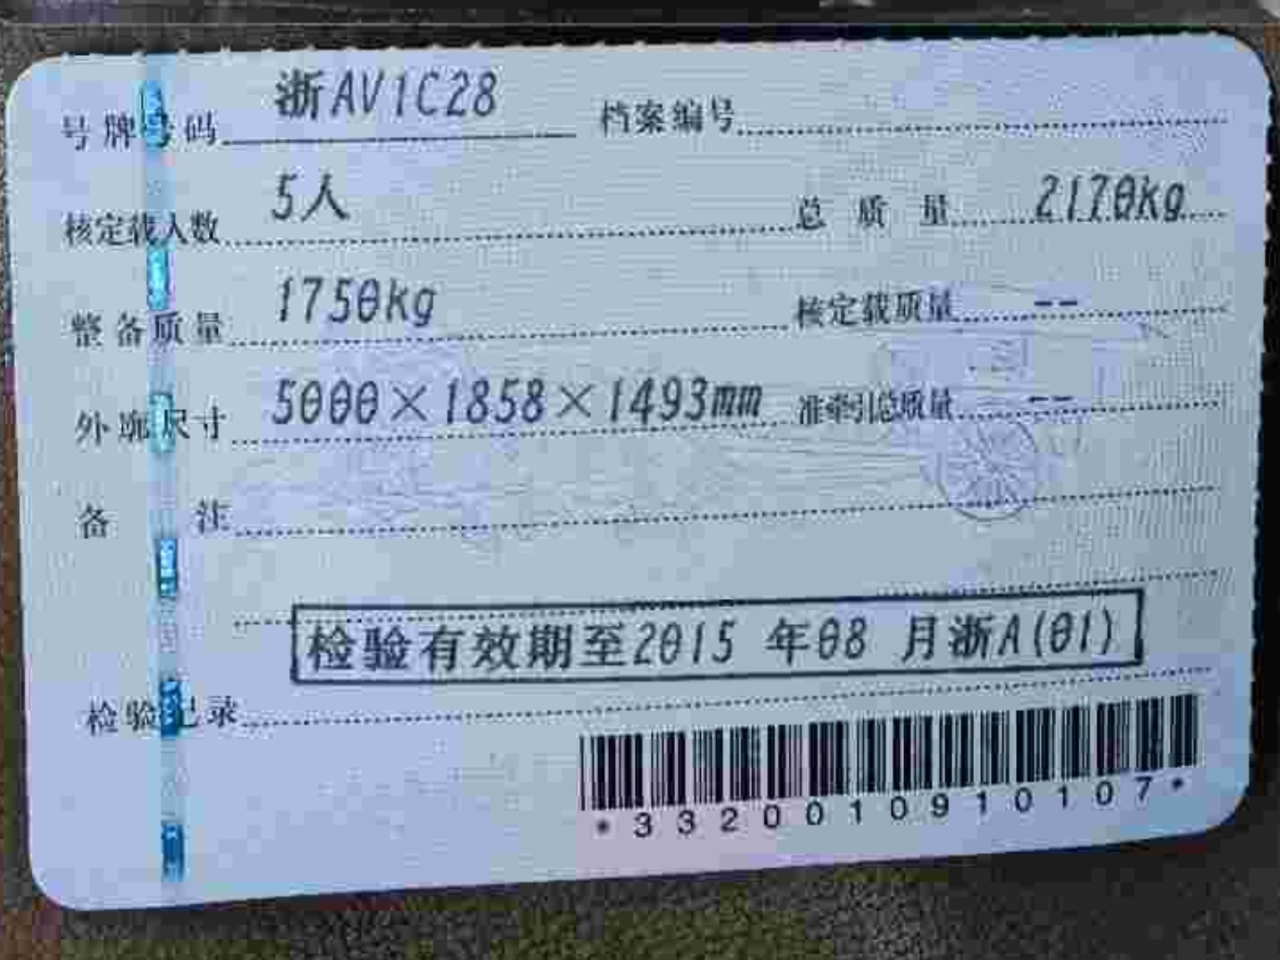 号牌号码 浙AV1C28 档案编号
核定载人数 5人 总质量 2170kg
整备质量 1750kg 核定载质量 --
外廓尺寸 5000×1858×1493mm 准牵引总质量 --
备注
检验有效期至2015 年08 月浙A(01)
检验记录
*3320010910107*